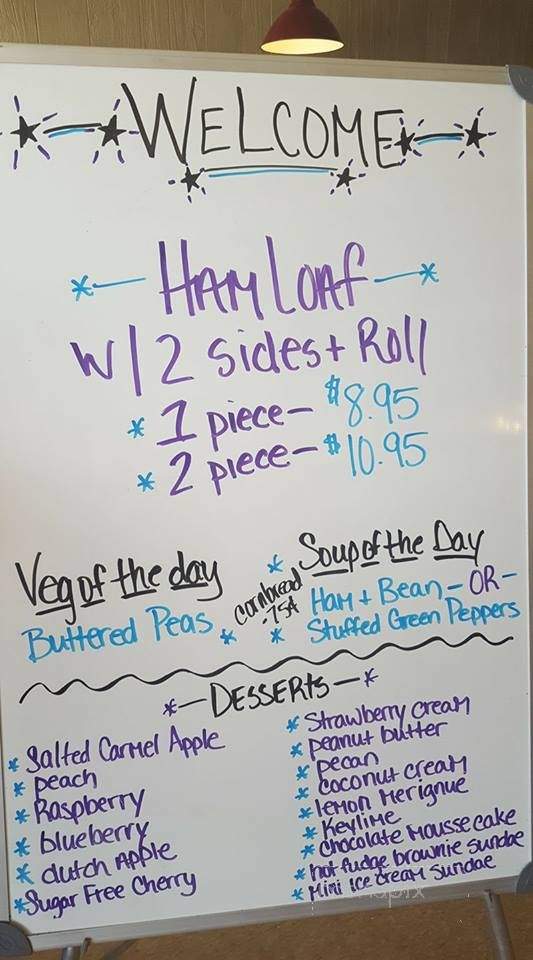 WELCOME
HAM LOAF
W/ 2 sides + Roll
* 1 piece- $8.95
* 2 piece- $10.95
Veg of the day
Buttered Peas
* cornbread
-75¢
* Soup of the Day
Ham + Bean - OR -
* Stuffed Green Peppers
*- DESSERTS -*
* Salted Carmel Apple
* peach
* Raspberry
* blueberry
* dutch Apple
* Sugar Free Cherry
* Strawberry cream
* peanut butter
* pecan
* coconut cream
* lemon Merignue
* Keylime
* chocolate Mousse cake
* hot fudge brownie sundae
* Mini Ice cream Sundae